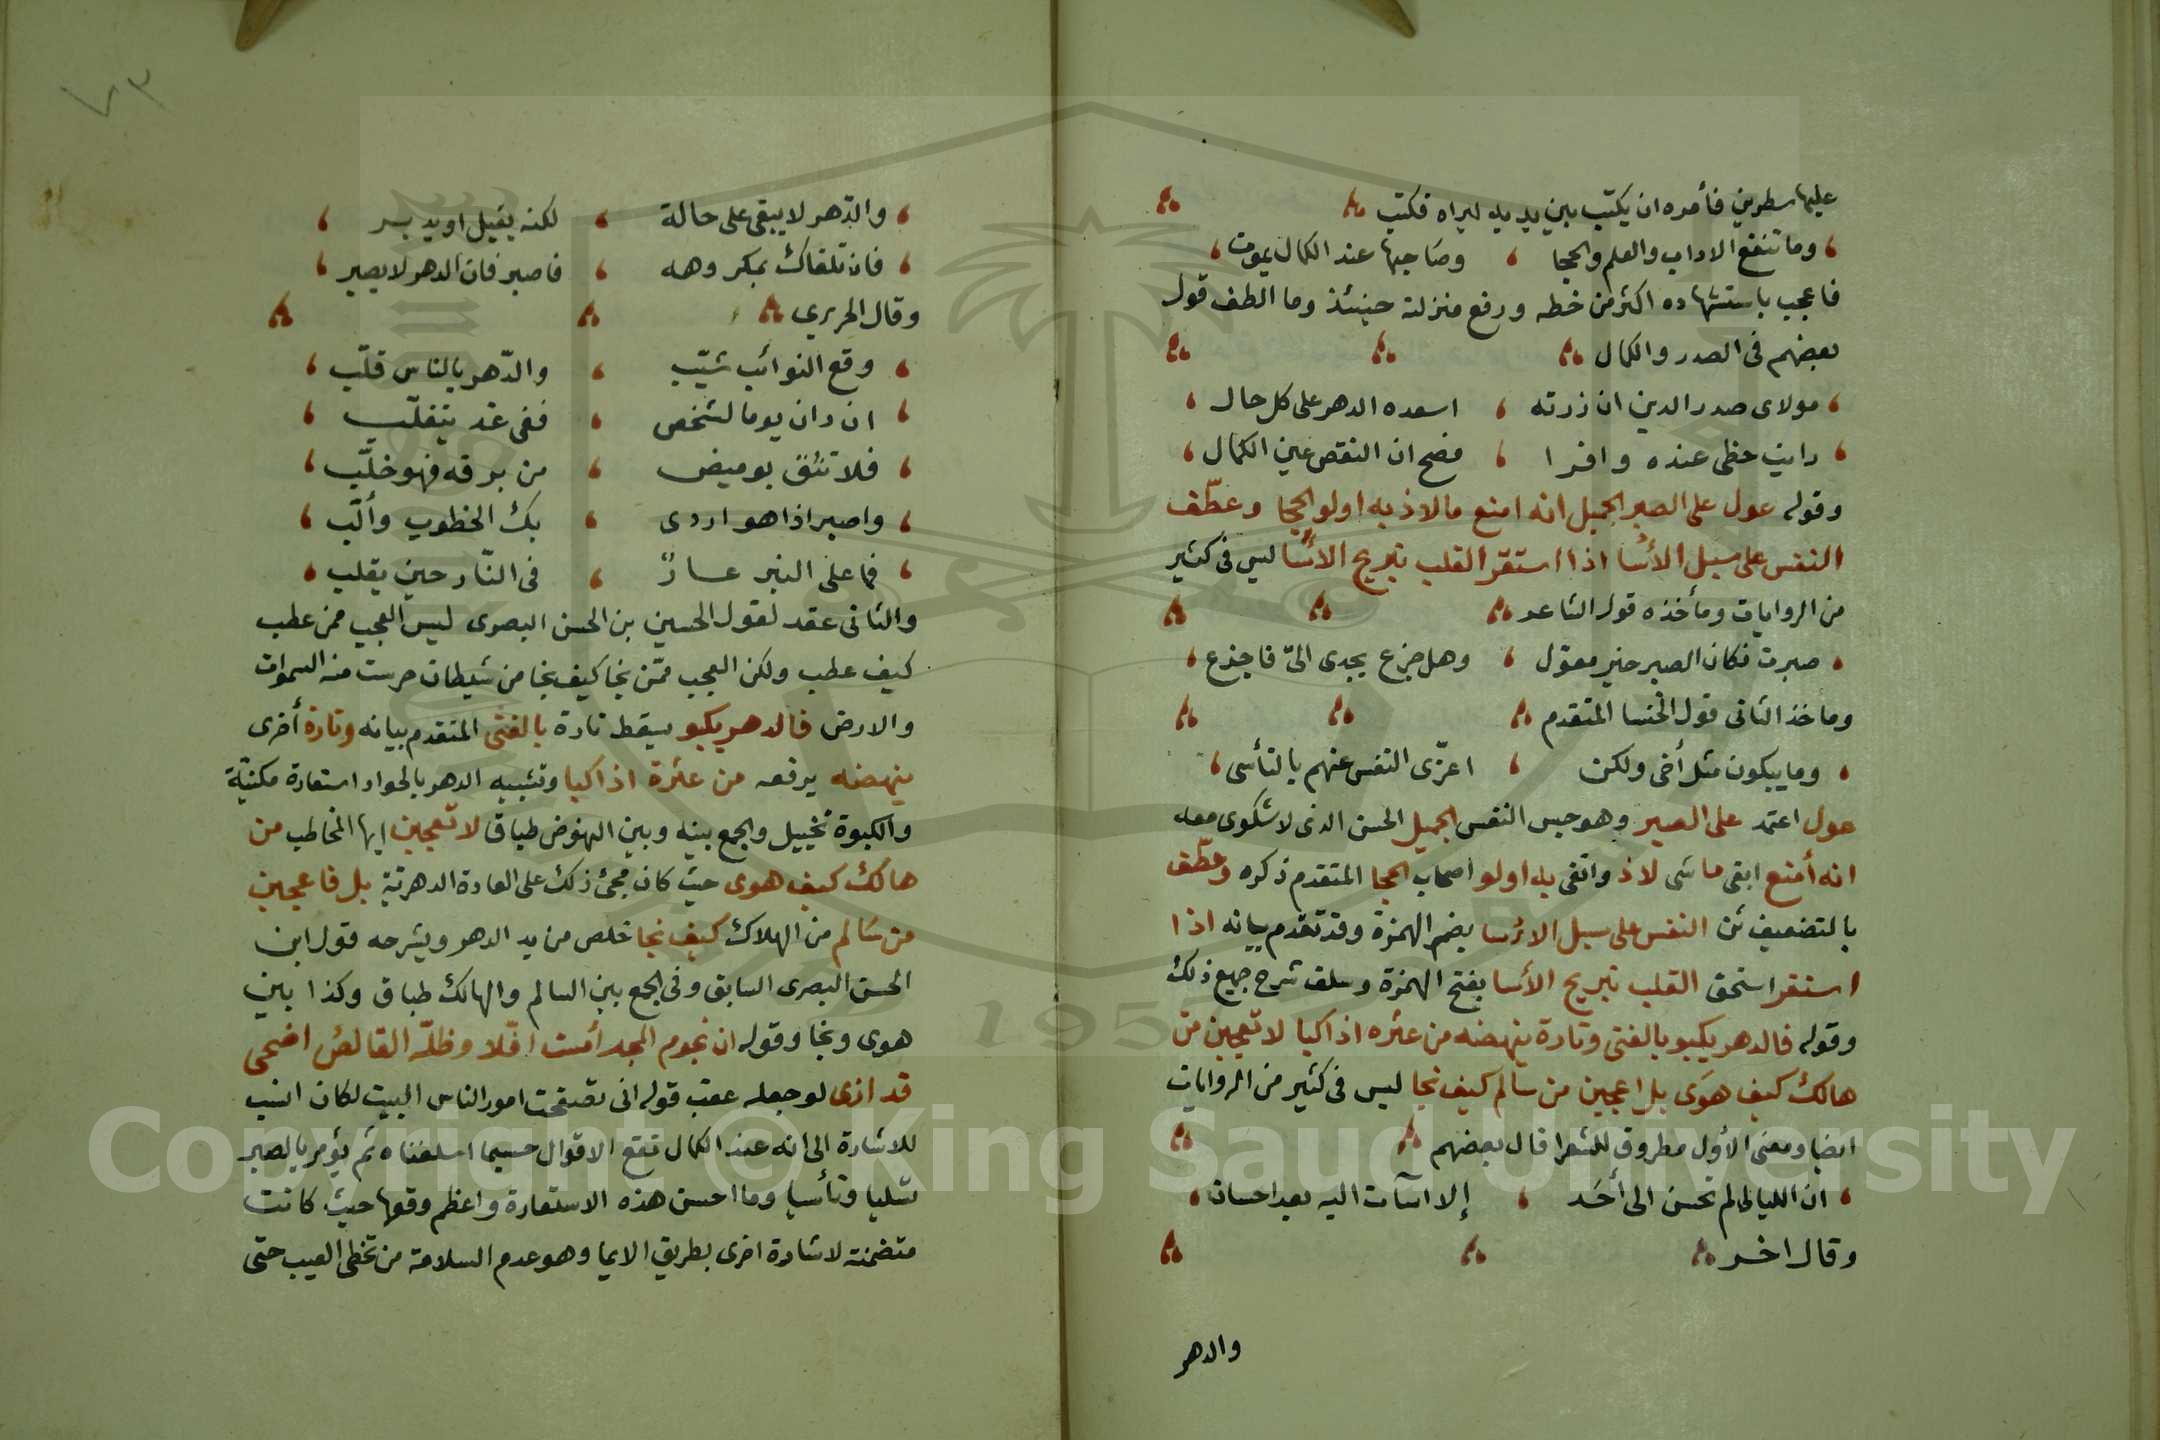 عليها سطرين فأمره ان يكتب بين يديه ليراه فكتب
وما تنفع الاداب والعلم والحجا وصاحبها عند الكمال يموت
فاعجب باستشهاده اكثر من خطه ورفع منزلته حينئذ وما الطف قول
بعضهم فى الصدر والكمال
مولاى صدر الدين ان زرته اسعده الدهر على كل حال
رايت حظى عنده وافرا فصح ان النقص عين الكمال
وقوله عول على الصبر الجميل انه امنع ما لاذ به اولو الحجا وعطّف
النفس على سبل الأُسا اذا استقر القلب تبريح الاسا ليس فى كثير
من الروايات ومأخذه قول الشاعر
صبرت فكان الصبر خير معوّل وهل جزع يجدى الىّ فاجزع
وماخذ الثانى قول الخنسا المتقدم
وما يبكون مثل أخى ولكن اعزّى النفس عنهم بالتأسى
عول اعتمد على الصبر وهو حبس النفس الجميل الحسن الذى لا شكوى معه
انه أمنع ابقى ما شى لاذ واتقى به اولو اصحاب الحجا المتقدم ذكره وعطّف
بالتضعيف ثن النفس على سبل الاسا بضم الهمزة وقد تقدم بيانه اذا
استقر استحق القلب تبريح الأسا بفتح الهمزة وسلف شرح جميع ذلك
وقوله فالدهر يكبو بالفتى وتارة ينهضه من عثره اذا كبا لا تعجبن من
هالك كيف هوَى بل اعجبن من سالم كيف نجا ليس فى كثير من الروايات
ايضا ومعنى الأول مطروق للشعرا قال بعضهم
ان الليالى لم تحسن الى أحَد إلا اسآت اليه بعد احسان
وقال اخر
والدهر
والدّهر لا يبقى على حالة لكنه يقبل او يدبر
فان تلقاك بمكروهه فاصبر فان الدهر لا يصبر
وقال الحريرى
وقع النوائب شيّب والدّهر بالناس قلّب
ان دان يوما لشخص ففى غد يتغلّب
فلا تثق بوميض من برقه فهو خلّب
واصبر اذا هو اردى بك الخطوب وألّب
فما على التبر عارٌ فى النّار حين يقلب
والثانى عقد لقول الحسين بن الحسن البصرى ليس العجب ممن عطب
كيف عطب ولكن العجب ممّن نجا كيف نجا من شيطان حرست منه السموات
والارض فالدهر يكبو يسقط تارة بالفتى المتقدم بيانه وتارة أخرى
ينهضه يرفعه من عثرة اذا كبا وتشبيه الدهر بالجواد استعارة مكنيّة
والكبوة تخييل والجمع بينه وبين النهوض طباق لا تعجبن ايها المخاطب من
هالك كيف هوى حيث كان مجئ ذلك على العادة الدهرية بل فاعجبن
من سَالم من الهلاك كيف نجا خلص من يد الدهر ويشرحه قول ابن
الحسن البصرى السابق وفى الجمع بين السالم والهالك طباق وكذا بين
هوى ونجا وقوله ان نجوم المجد أمست افّلا وظلّه القالص اضحى
قد ازى لو جعله عقب قوله انى تصفحت امور الناس البيت لكان انسب
للاشارة الى انه عند الكمال تقع الاقوال حسبما اسلفناه ثم يؤمر بالصبر
تسليا وتأسيا وما احسن هذه الاستعارة واعظم وقعها حيث كانت
متضمنة لاشارة اخرى بطريق الايما وهو عدم السلامة من تخطى العيب حتى
٧٣
Copyright © King Saud University
1957